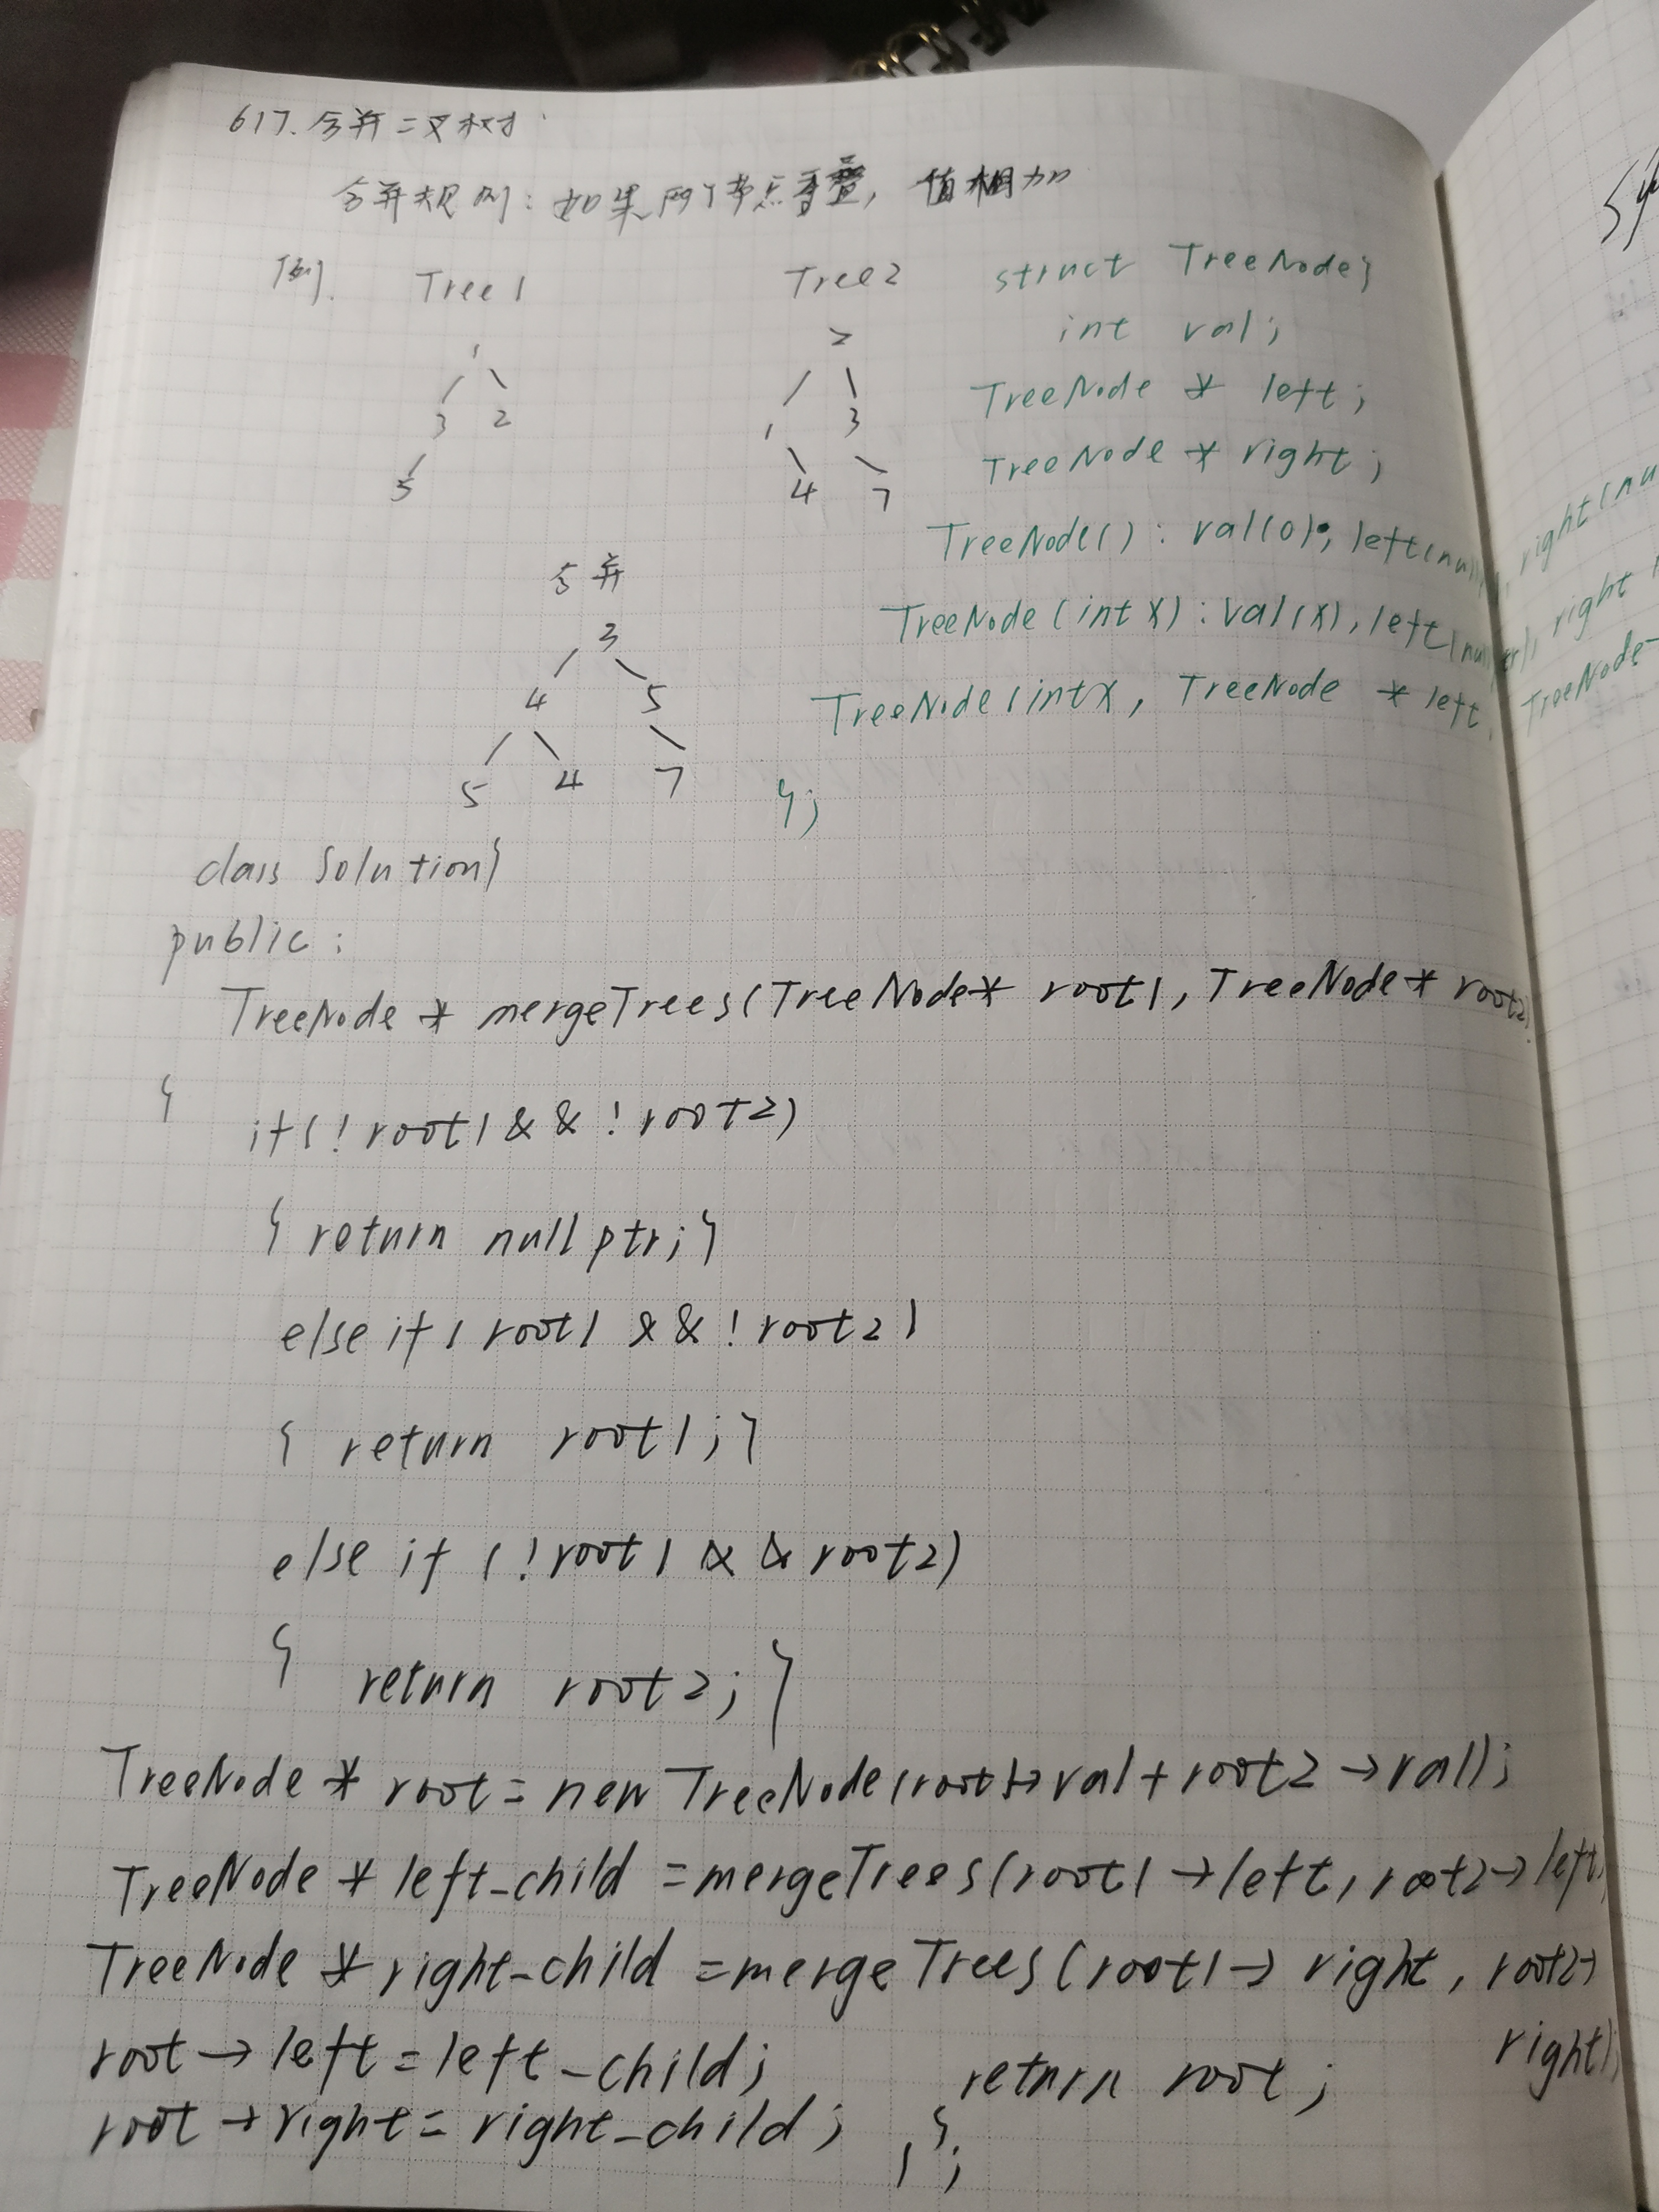 617.合并二叉树
合并规则：如果两个节点重叠，值相加
例. Tree1 Tree2
1
3 2
5
2
1 3
4 7
合并
3
4 5
5 4 7
struct TreeNode{
int val;
TreeNode * left;
TreeNode * right;
TreeNode() : val(0), left(null), right(nu
TreeNode(int x) : val(x), left(nu ter), right
TreeNode(int x, TreeNode * left, TreeNode
};
class Solution{
public:
TreeNode * mergeTrees(TreeNode* root1, TreeNode* root2)
{
if(!root1 && !root2)
{ return nullptr;}
else if( root1 && !root2)
{ return root1;}
else if (!root1 && root2)
{ return root2; }
TreeNode * root = new TreeNode(root1->val + root2->val);
TreeNode * left_child = mergeTrees(root1->left, root2->left);
TreeNode * right_child = mergeTrees(root1->right, root2->
right);
root->left = left_child;
root->right = right_child;
return root;
}
};